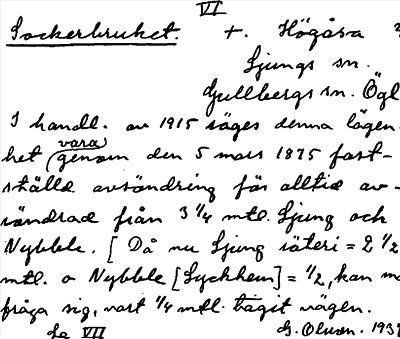 VI
Sockerbruket. +. Högåsa
Ljungs sn.
Gullbergs sn. Ögl
I handl. av 1915 säges denna lägen-
het vara genom den 5 mars 1875 fast-
ställd avsöndring för alltid av-
söndrad från 3 1/4 mtl. Ljung och
Nybble. [Då nu Ljung säteri = 2 1/2
mtl. o Nybble [Lyckhem] = 1/2, kan ma
fråga sig, vart 1/4 mtl. tagit vägen.
Se VII G. Olsson. 193